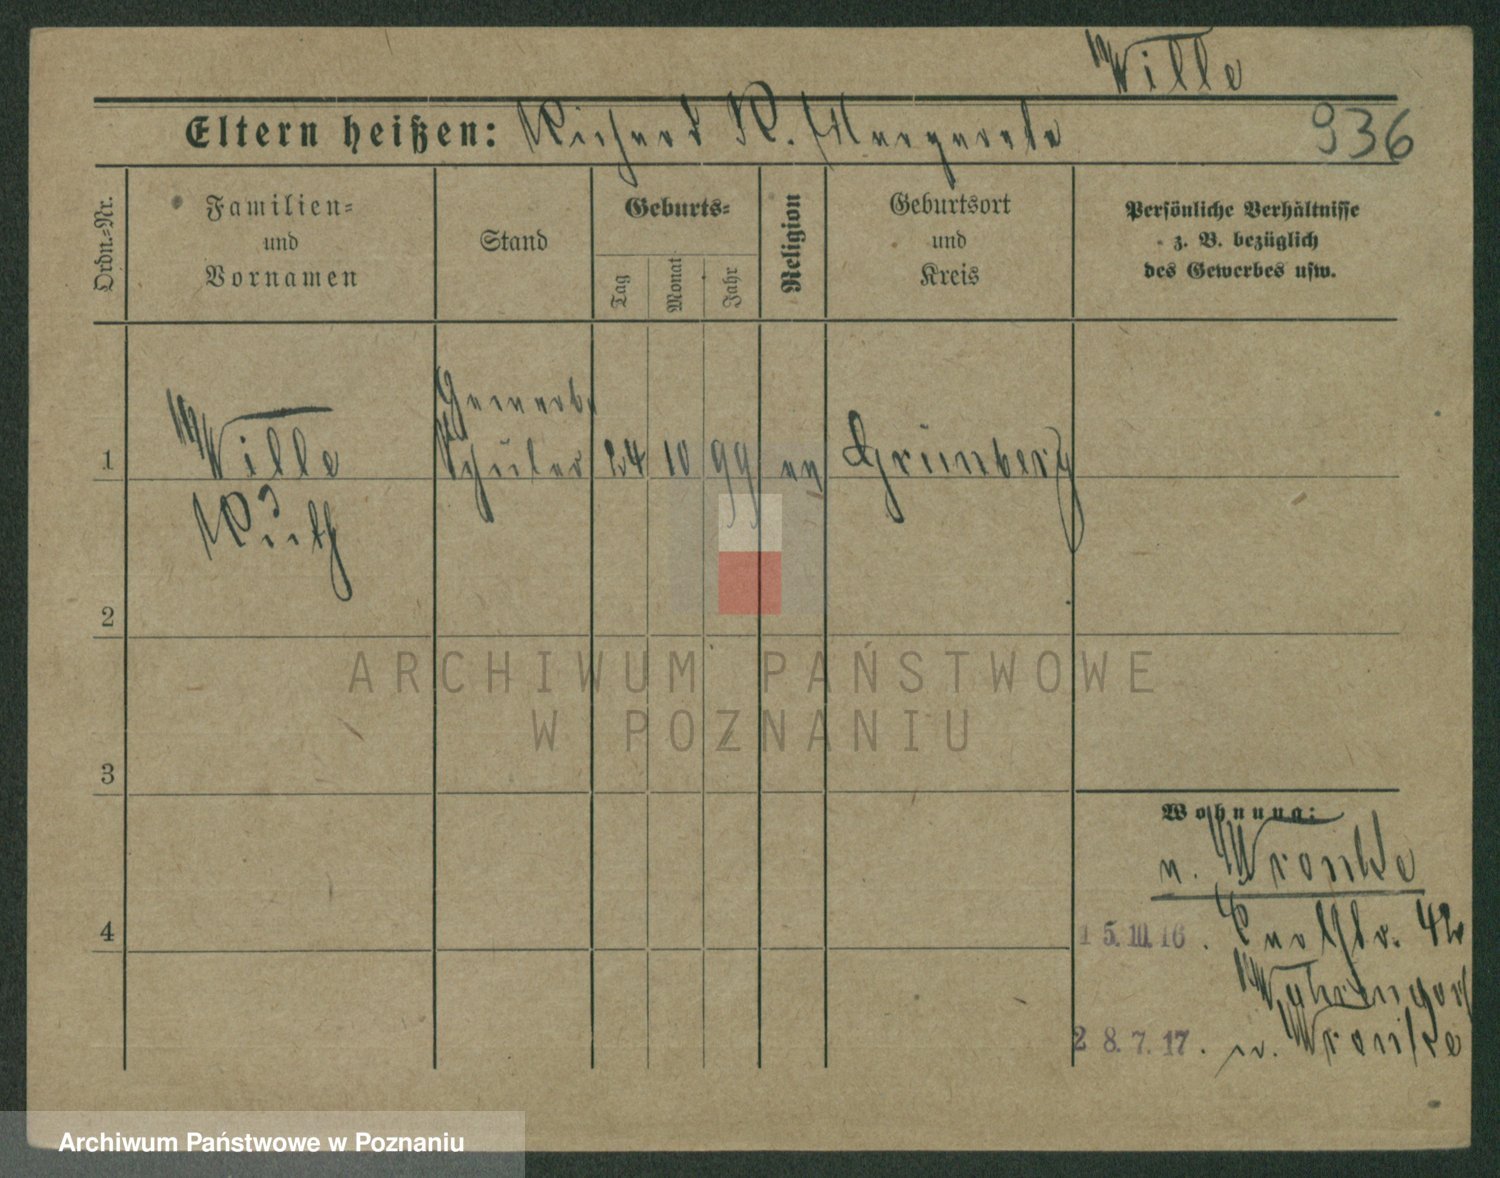 Wille
Eltern heißen: Richard u. Margarete
936
Ordn.-Nr.
Familien-
und
Vornamen
Stand
Geburts-
Tag
Monat
Jahr
Religion
Geburtsort
und
Kreis
Persönliche Verhältnisse
z. B. bezüglich
des Gewerbes usw.
1
Wille
Ruth
Gewerbe
Schüler
24
10
99
ev
Grünberg
2
3
4
Wohnung:
n. Wronke
15.10.16.
42
28.7.17. n. Wronke
ARCHIWUM PAŃSTWOWE
W POZNANIU
Archiwum Państwowe w Poznaniu